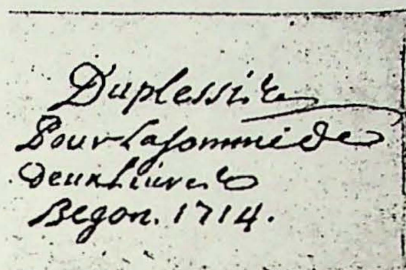 Duplessis
Pour La somme de
deux Livres
Begon. 1714.